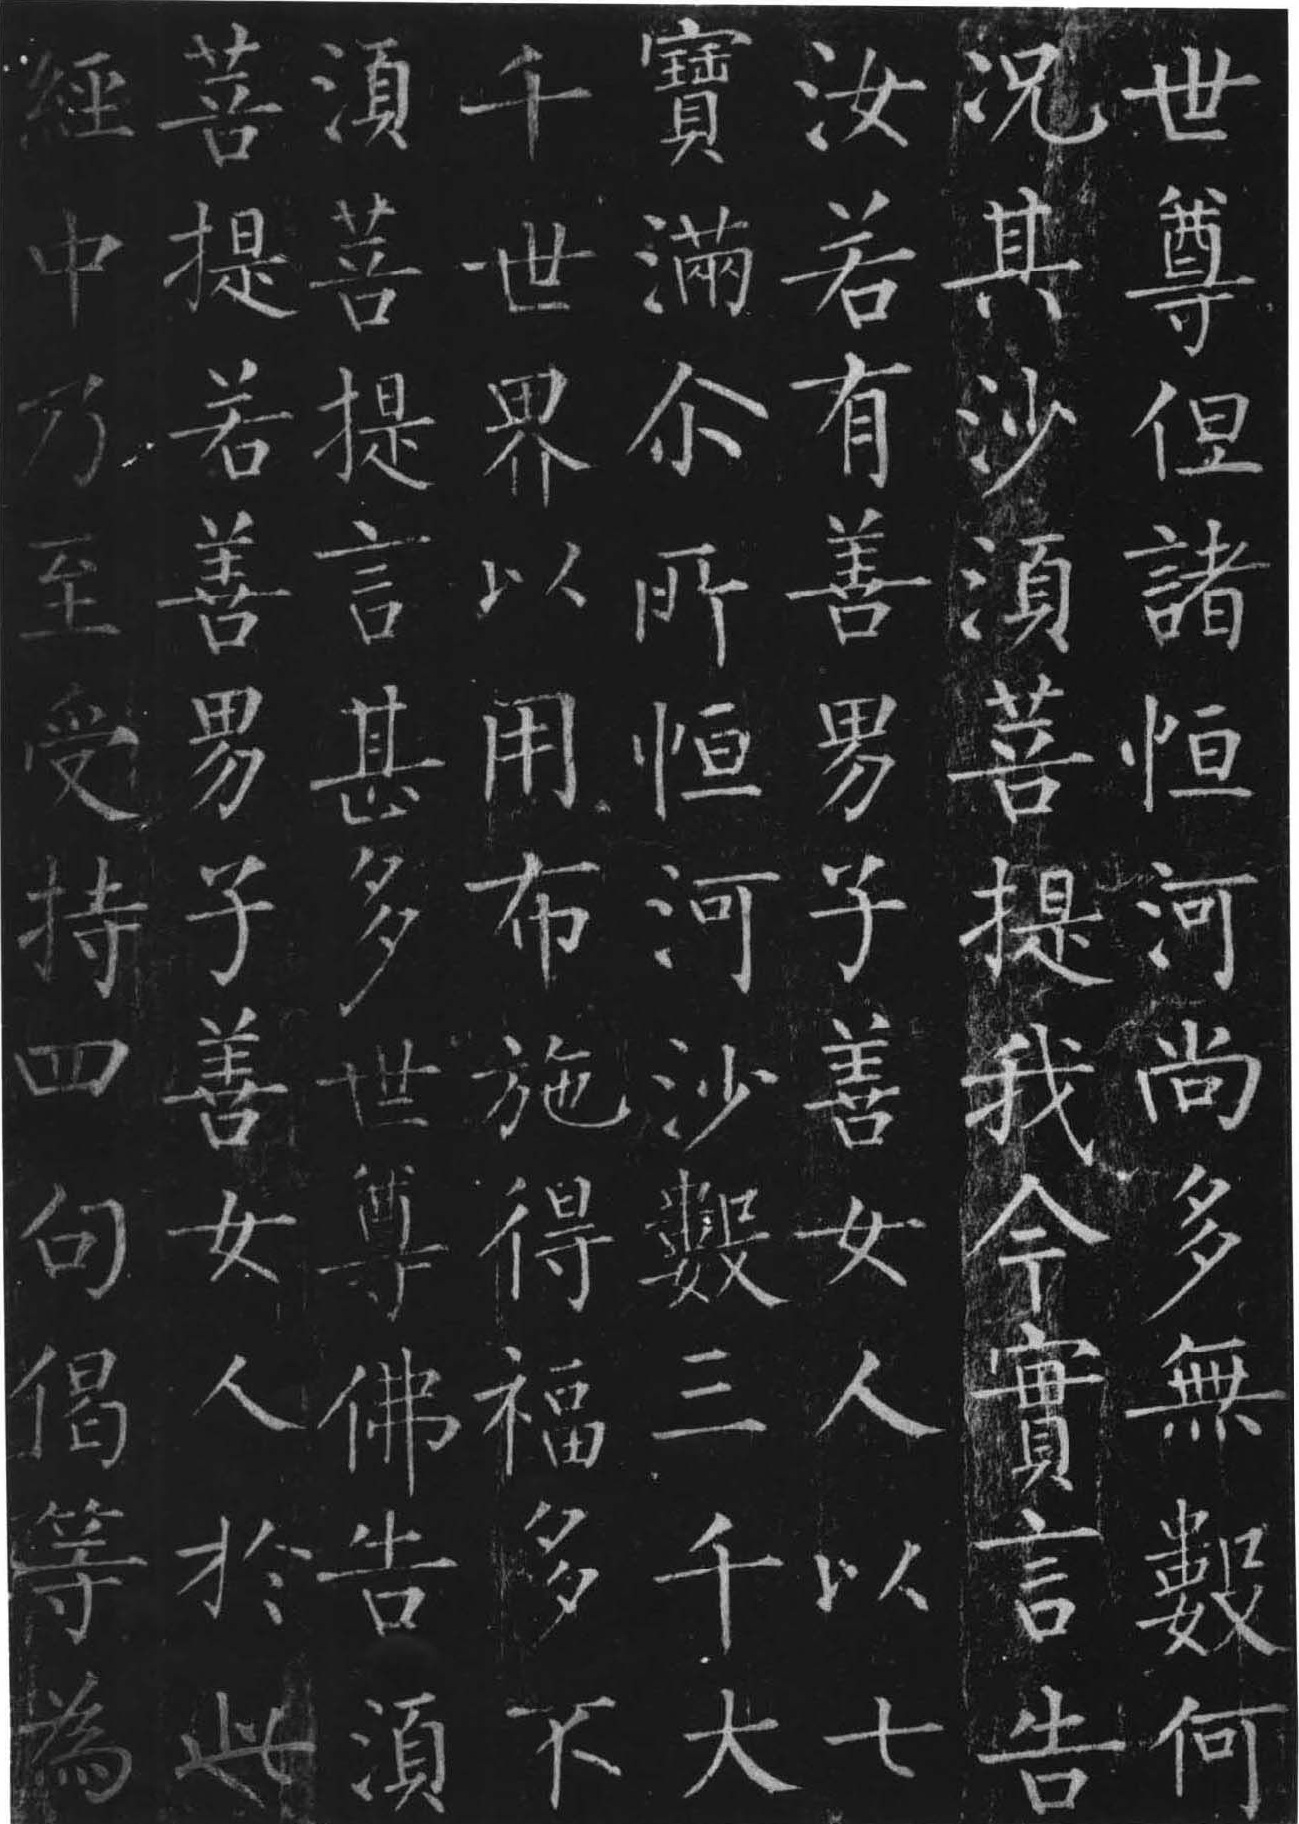 世尊但諸恒河尚多無數何
況其沙須菩提我今實言告
汝若有善男子善女人以七
寶滿尒所恒河沙數三千大
千世界以用布施得福多不
須菩提言甚多世尊佛告須
菩提若善男子善女人於此
經中乃至受持四句偈等為